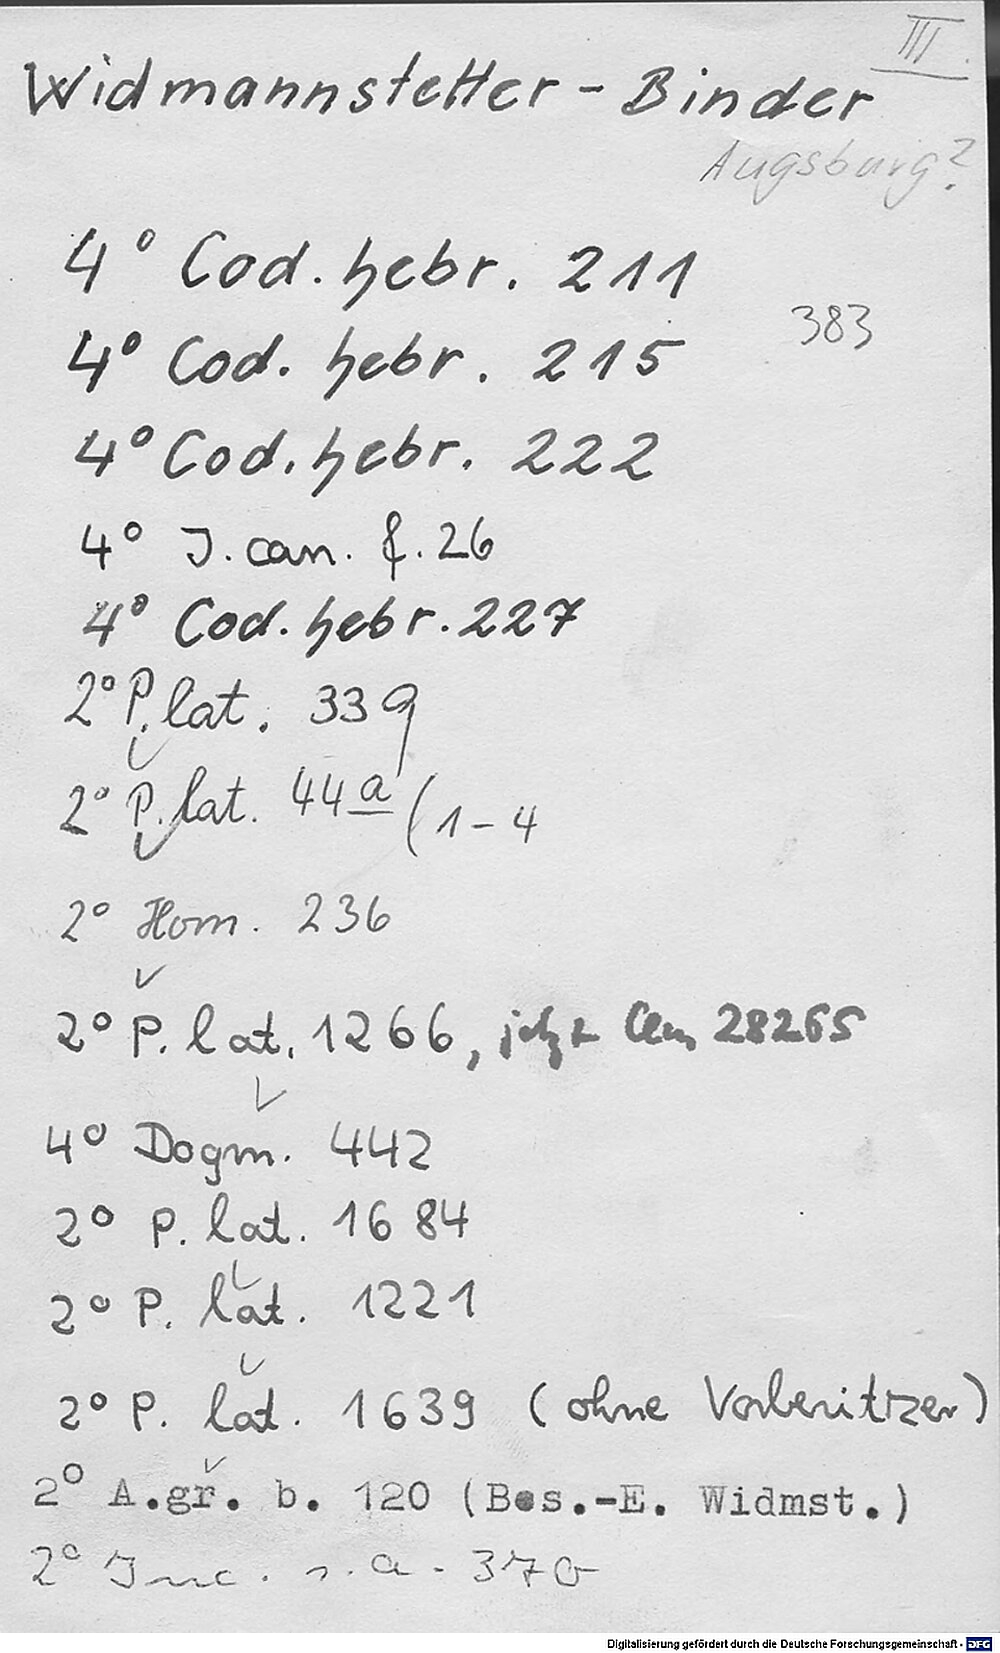 III.
Widmannstetter - Binder
Augsburg?
4° Cod. hebr. 211
383
4° Cod. hebr. 215
4° Cod. hebr. 222
4° J. can. f. 26
4° Cod. hebr. 227
2° P. lat. 339
2° P. lat. 44a (1-4
2° Hom. 236
2° P. lat. 1266, jetzt Clm 28265
4° Dogm. 442
2° P. lat. 1684
2° P. lat. 1221
2° P. lat. 1639 (ohne Vorbesitzer)
2° A.gr. b. 120 (Bes.-E. Widmst.)
2° Inc. s. a. 370
Digitalisierung gefördert durch die Deutsche Forschungsgemeinschaft - DFG